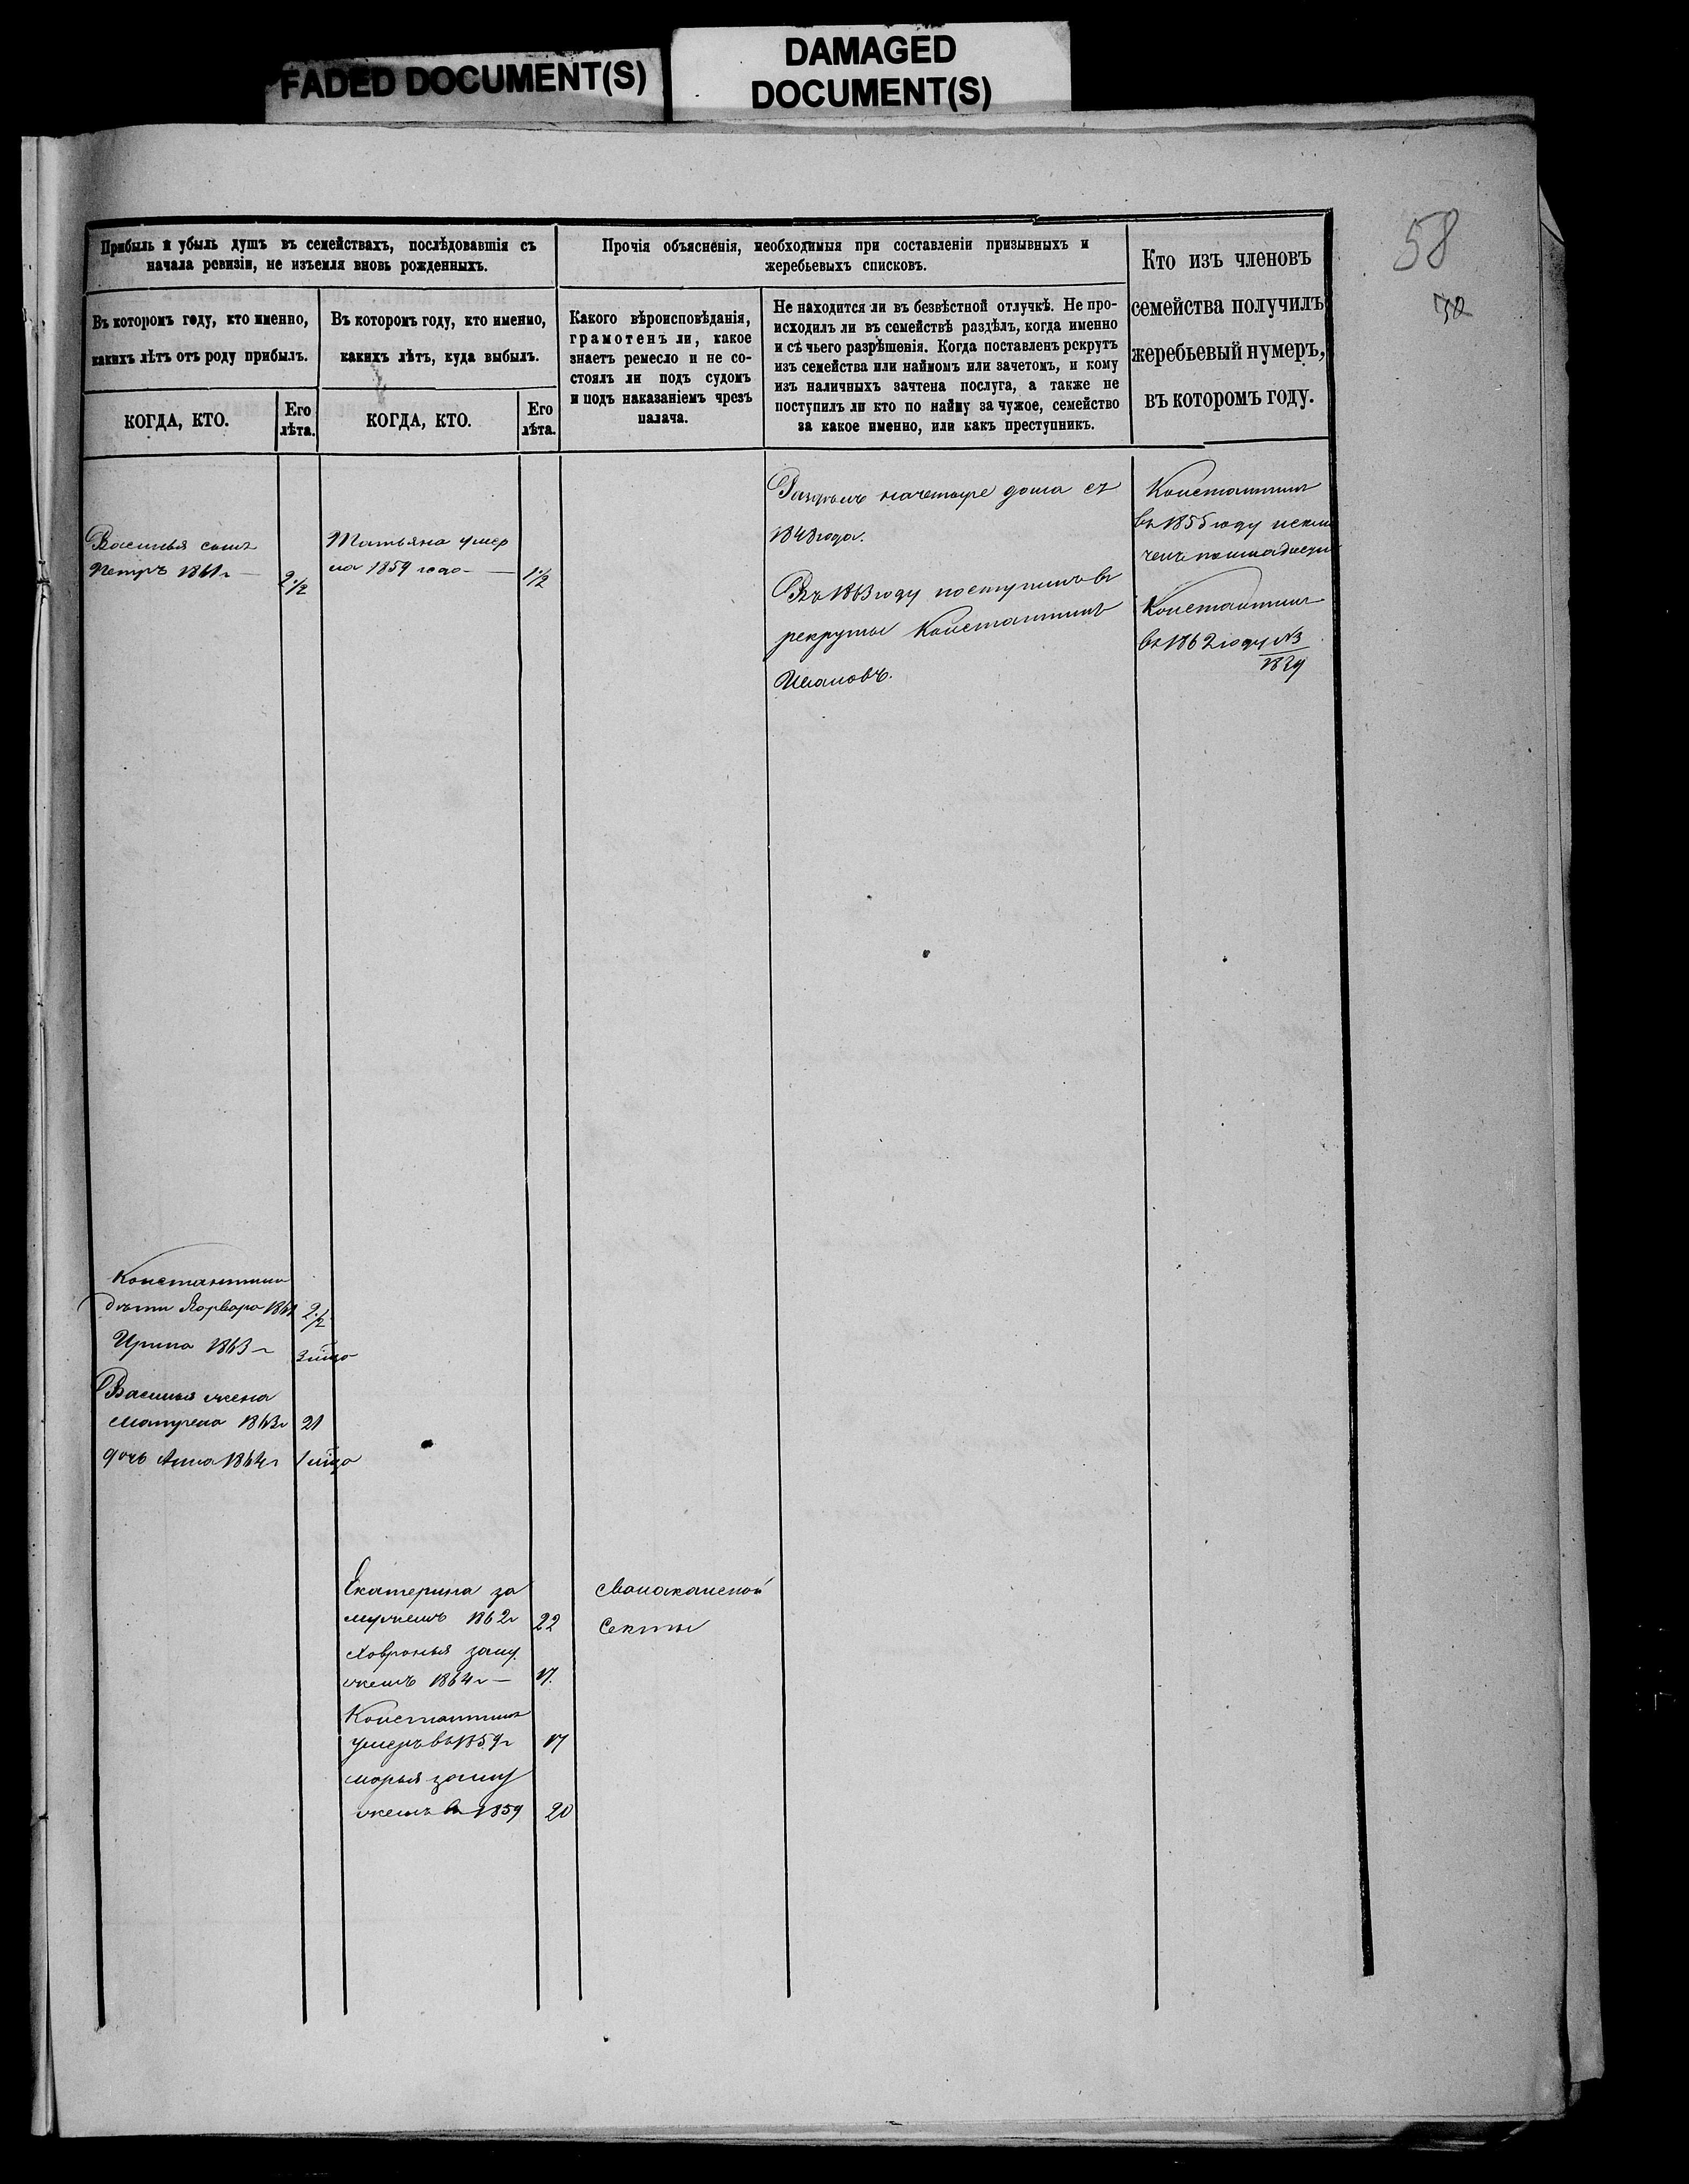 FADED DOCUMENT(S)
DAMAGED
DOCUMENT(S)
58
Прибыль и убыль душъ въ семействахъ, послѣдовавшія съ
начала ревизіи, не изъемля вновь рожденныхъ.
Прочія объясненія, необходимыя при составленіи призывныхъ и
жеребьевыхъ списковъ.
Кто изъ членовъ
семейства получилъ
жеребьевый нумеръ,
въ которомъ году.
Въ которомъ году, кто именно,
какихъ лѣтъ отъ роду прибылъ.
Въ которомъ году, кто именно,
какихъ лѣтъ, куда выбылъ.
Какого вѣроисповѣданія,
грамотенъ ли, какое
знаетъ ремесло и не со-
стоялъ ли подъ судомъ
и подъ наказаніемъ чрезъ
палача.
Не находится ли въ безвѣстной отлучкѣ. Не про-
исходилъ ли въ семействѣ раздѣлъ, когда именно
и съ чьего разрѣшенія. Когда поставленъ рекрутъ
изъ семейства или наймомъ или зачетомъ, и кому
изъ наличныхъ зачтена послуга, а также не
поступилъ ли кто по найму за чужое, семейство
за какое именно, или какъ преступникъ.
КОГДА, КТО.
Его
лѣта.
КОГДА, КТО.
Его
лѣта.
Василья сынъ
Петръ 1861 г
2 1/2
Татьяна умер
ла 1859 года
1 1/2
Раздѣлъ на четыре дома съ
1848 года.
Въ 1863 году поступилъ въ
рекруты Константинъ
Ивановъ.
Константинъ
въ 1855 году исклю
ченъ
Константинъ
въ 1862 году №
Константина
дѣти Варвара 1861
2 1/2
Ирина 1863 г
Василья жена
Матрена 1863 г
21
дочь Анна 1864 г
Екатерина за
мужемъ 1862 г
22
Ховронья заму
жемъ 1864 г
17.
Константинъ
умеръ въ 1859 г
17
Марья заму
жемъ въ 1859
20
Молоканской
Секты